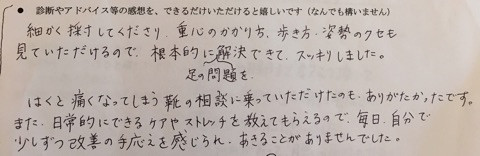 ● 診断やアドバイス等の感想を、できるだけいただけると嬉しいです（なんでも構いません）
細かく探してくださり、重心のかかりち、歩き方・姿勢のクセも
見ていただけるので、根本的に解決できて、スッキリしました。
足の問題を
はくと痛くなってしまう靴の相談に乗っていただけたのも、ありがたかったです。
また、日常的にできるケアやストレッチを教えてもらえるので、毎日、自分で
少しずつ改善の手応えを感じられ、あきることがありませんでした。